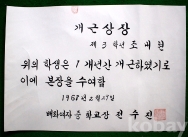 개근상장
제 3 학년 조미현
위의 학생은 1 개년간 개근하였기로
이에 본장을 수여함
1968년 2월 21일
배화여자중학교장 전수진
kobay